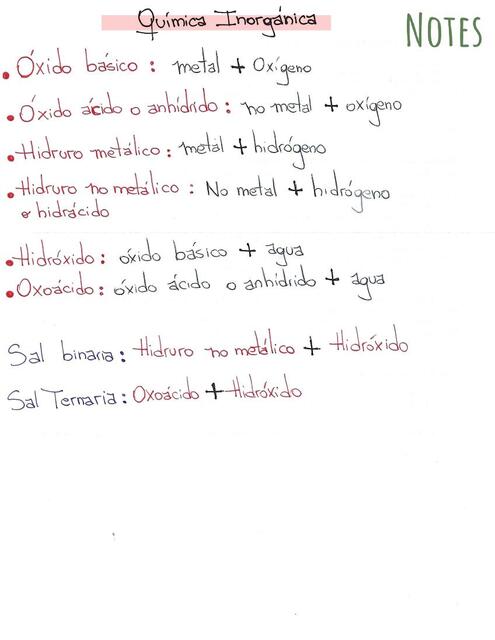 Química Inorgánica
NOTES
• Óxido básico : metal + Oxígeno
• Óxido ácido o anhídrido : no metal + oxígeno
• Hidruro metálico : metal + hidrógeno
• Hidruro no metálico : No metal + hidrógeno
o hidrácido
• Hidróxido : óxido básico + agua
• Oxoácido : óxido ácido o anhídrido + agua
Sal binaria : Hidruro no metálico + Hidróxido
Sal Ternaria : Oxoácido + Hidróxido